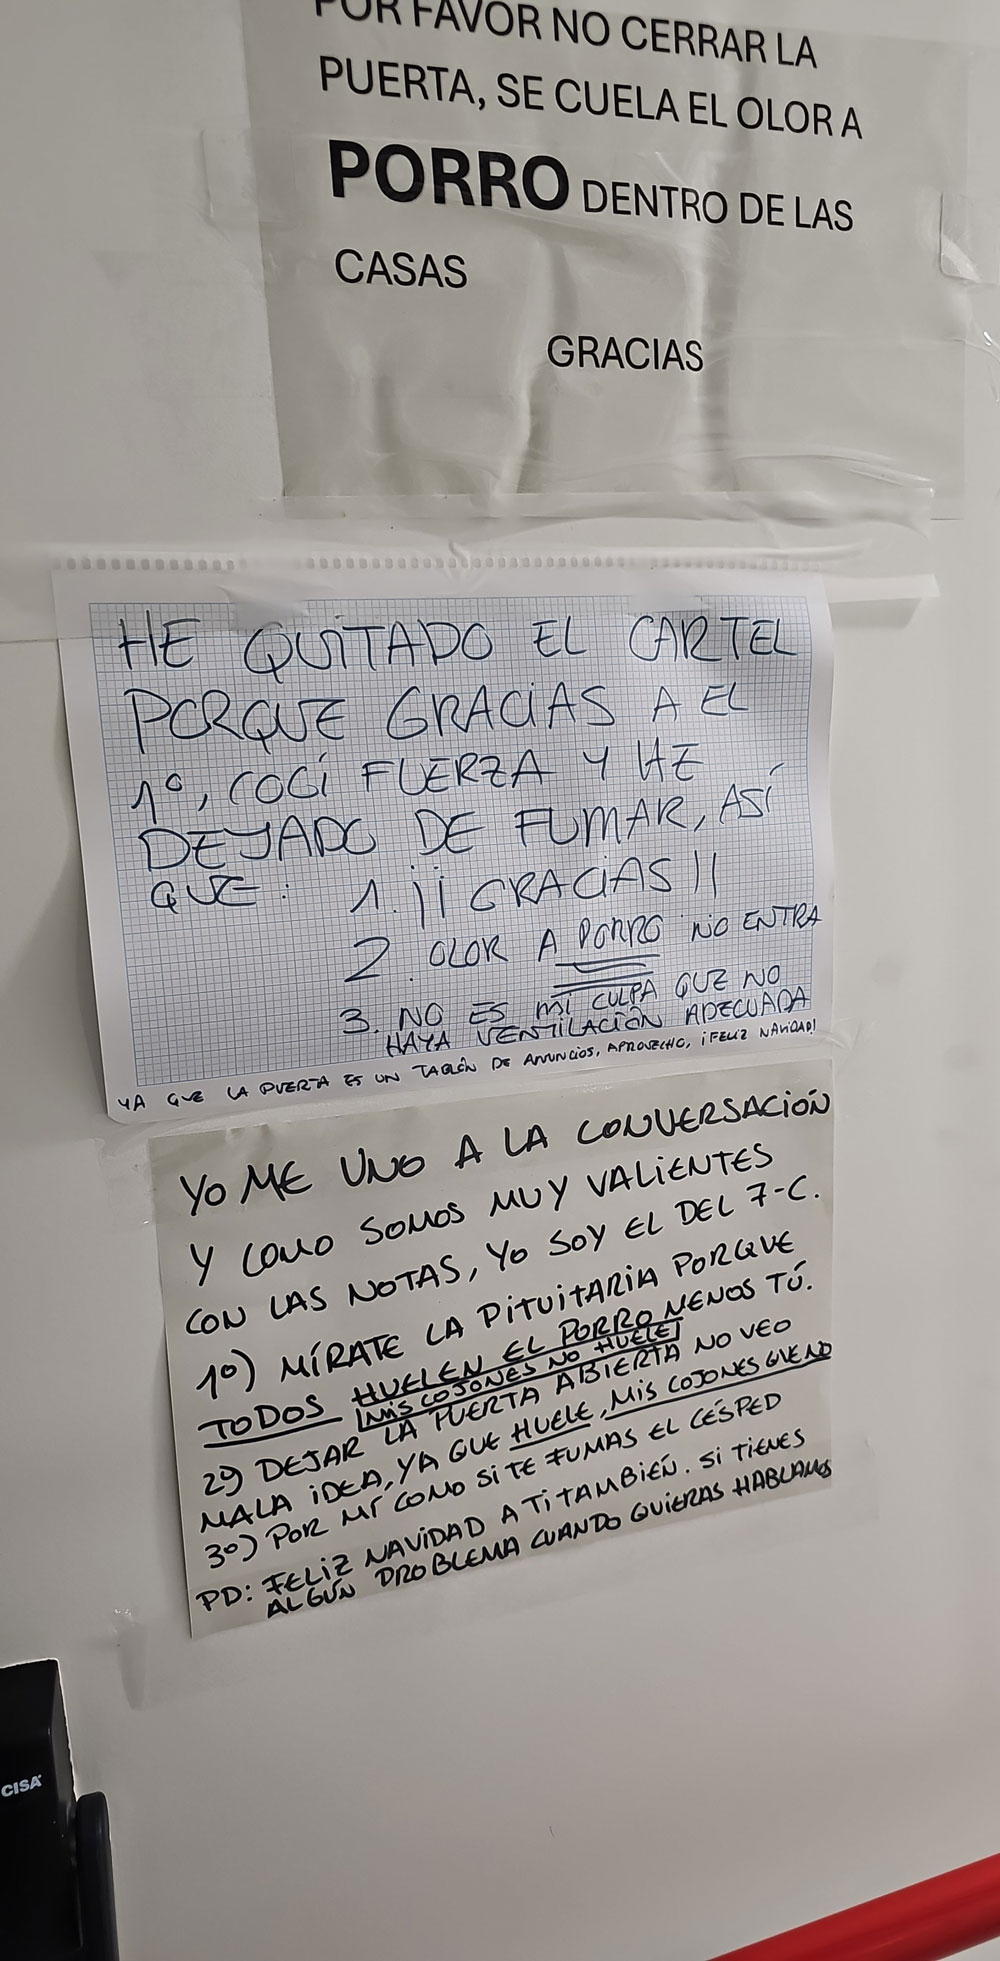 POR FAVOR NO CERRAR LA
PUERTA, SE CUELA EL OLOR A
PORRO DENTRO DE LAS
CASAS
GRACIAS
HE QUITADO EL CARTEL
PORQUE GRACIAS A EL
1º, COGÍ FUERZA Y HE
DEJADO DE FUMAR, ASÍ
QUE: 1. ¡¡ GRACIAS !!
2. OLOR A PORRO NO ENTRA
3. NO ES MI CULPA QUE NO
HAYA VENTILACIÓN ADECUADA
YA QUE LA PUERTA ES UN TABLÓN DE ANUNCIOS, APROVECHO, ¡FELIZ NAVIDAD!
YO ME UNO A LA CONVERSACIÓN
Y COMO SOMOS MUY VALIENTES
CON LAS NOTAS, YO SOY EL DEL 7-C.
1º) MÍRATE LA PITUITARIA PORQUE
TODOS HUELEN EL PORRO MENOS TÚ.
MIS COJONES NO HUELE
2º) DEJAR LA PUERTA ABIERTA NO VEO
MALA IDEA, YA QUE HUELE, MIS COJONES QUE NO
3º) POR MÍ COMO SI TE FUMAS EL CÉSPED
PD: FELIZ NAVIDAD A TI TAMBIÉN. SI TIENES
ALGÚN PROBLEMA CUANDO QUIERAS HABLAMOS
CISA